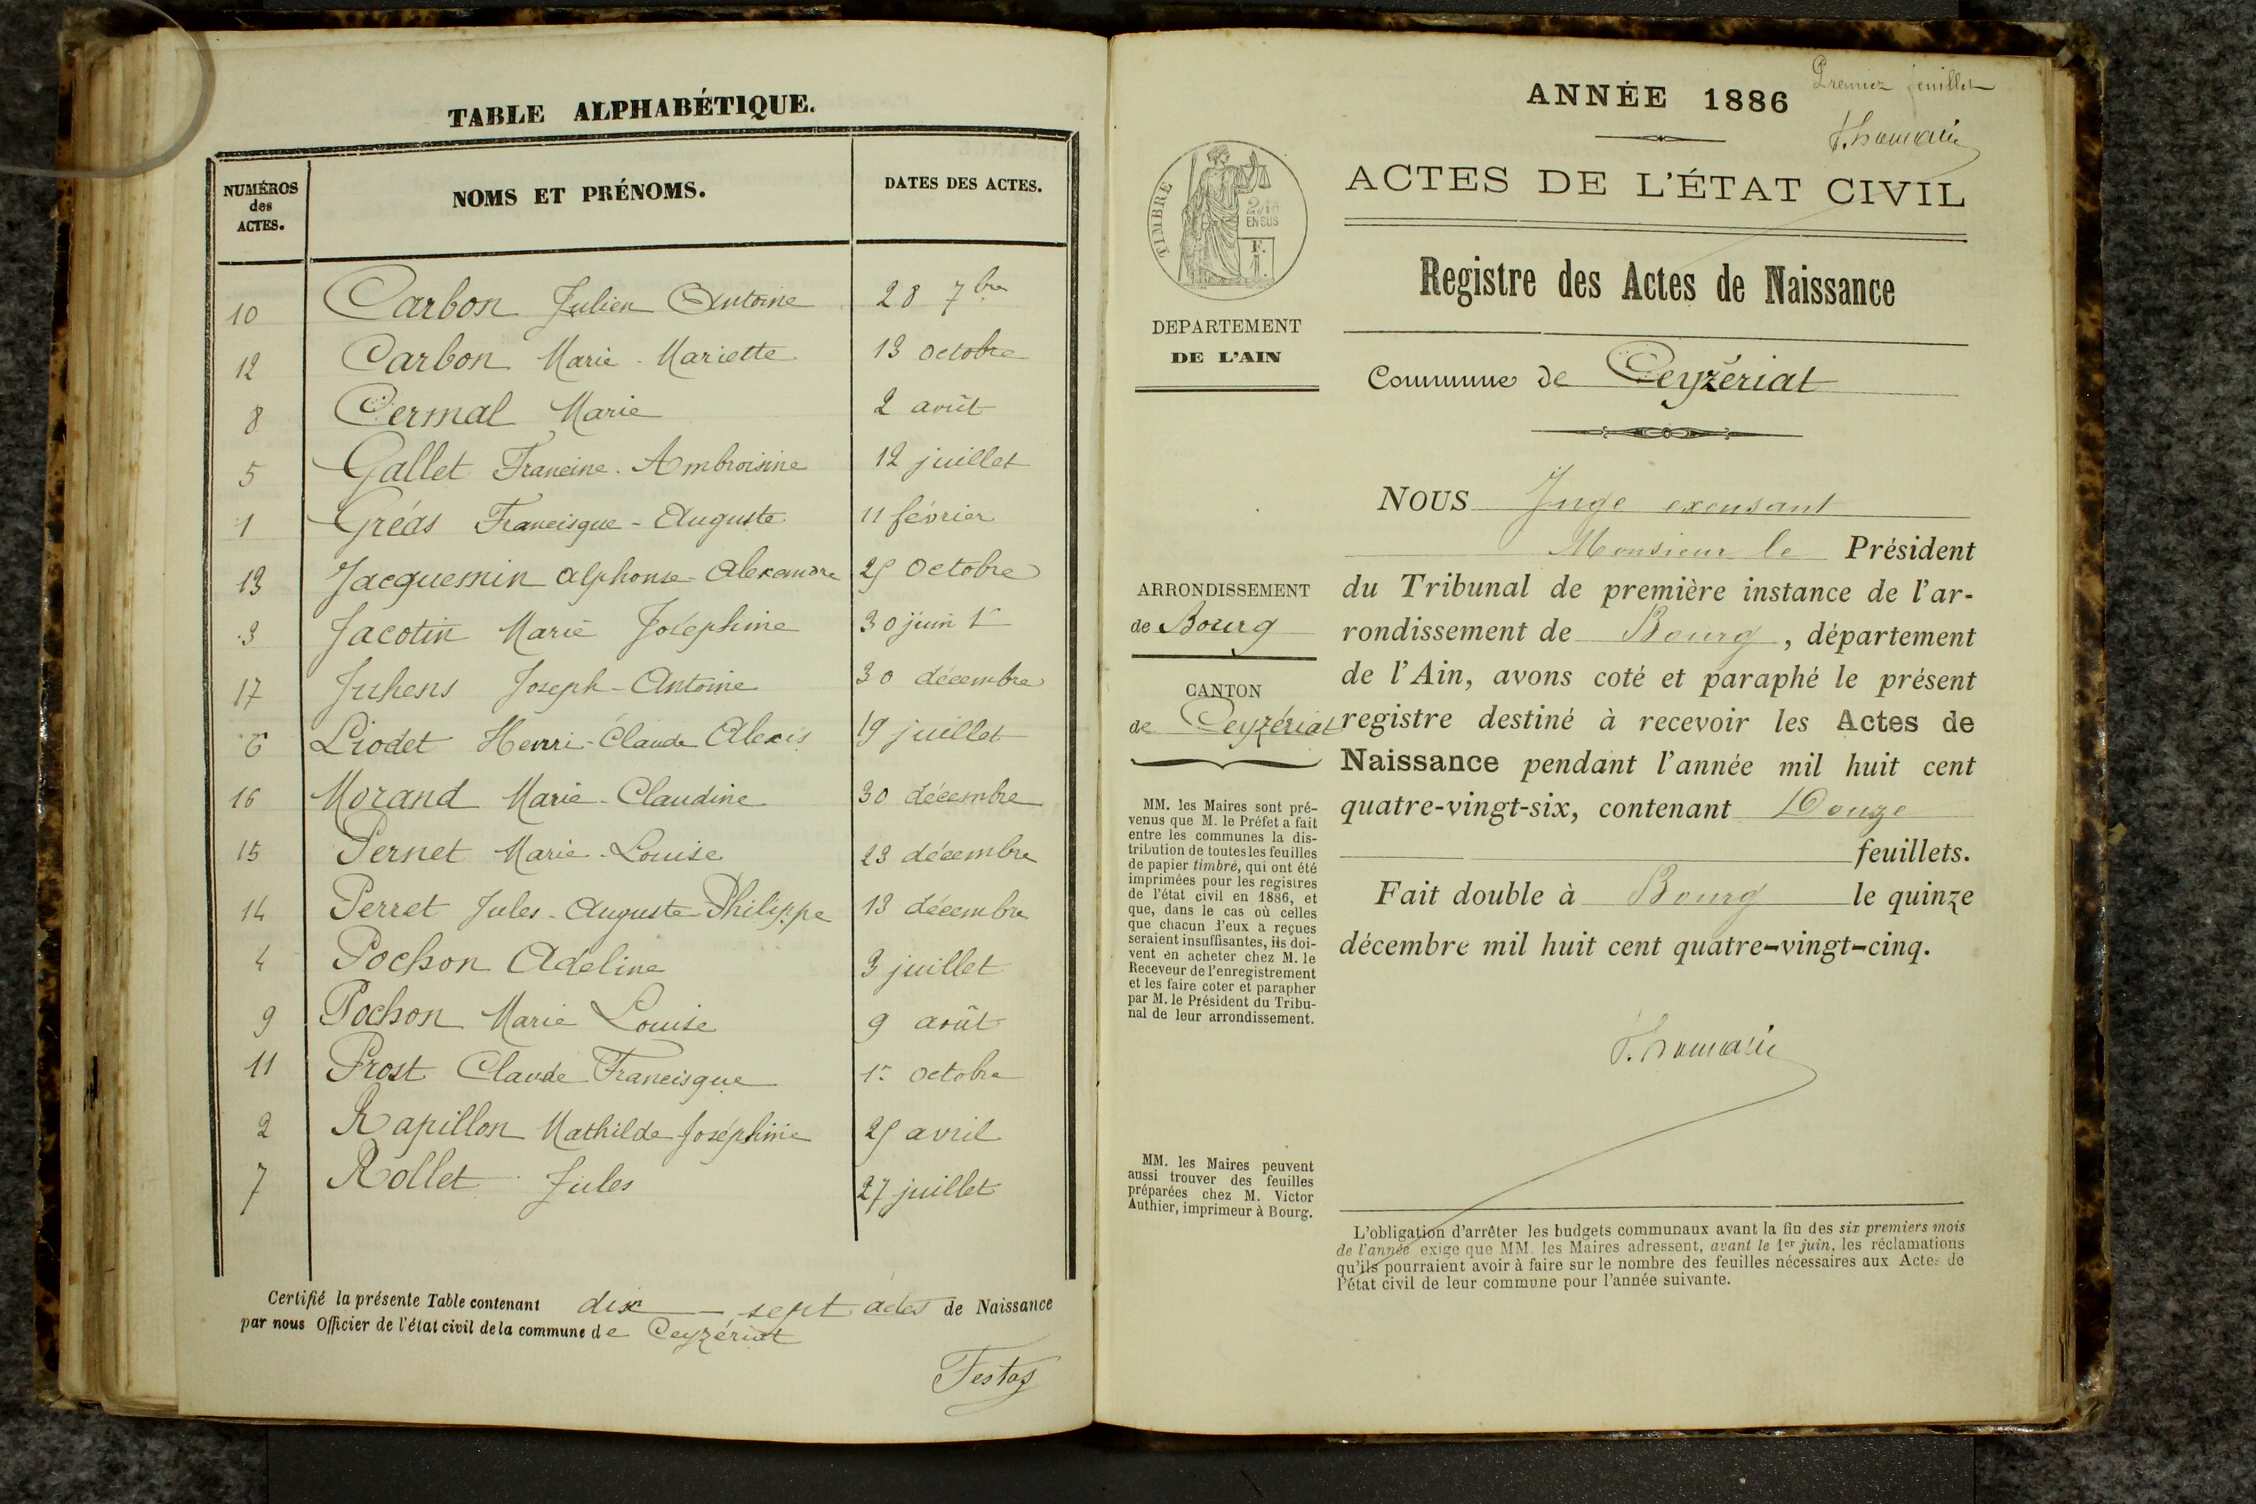 TABLE ALPHABÉTIQUE.
NUMÉROS des ACTES. NOMS ET PRÉNOMS. DATES DES ACTES.
10 Carbon Julien Antoine 28 7bre
12 Carbon Marie-Mariette 13 octobre
8 Cermal Marie 2 août
5 Gallet Francine-Ambroisine 12 juillet
1 Gréas Francisque-Auguste 11 février
13 Jacquemin Alphonse-Alexandre 25 Octobre
3 Jacotin Marie Joséphine 30 juin
17 Juhens Joseph-Antoine 30 décembre
6 Liodet Henri-Claude Alexis 19 juillet
16 Morand Marie-Claudine 30 décembre
15 Pernet Marie-Louise 23 décembre
14 Perret Jules-Auguste-Philippe 13 décembre
4 Pochon Adeline 3 juillet
9 Pochon Marie Louise 9 août
11 Prost Claude Francisque 1er octobre
2 Rapillon Mathilde Joséphine 25 avril
7 Rollet Jules 27 juillet
Certifié la présente Table contenant dix-sept actes de Naissance
par nous Officier de l'état civil de la commune de Ceyzériat
Festas
Premier feuillet
ANNÉE 1886
ACTES DE L'ÉTAT CIVIL
TIMBRE
2/10
EN SUS
F.
Registre des Actes de Naissance
DEPARTEMENT
DE L'AIN
Commune de Ceyzériat
NOUS Juge excusant
Monsieur le Président
du Tribunal de première instance de l'ar-
rondissement de Bourg, département
de l'Ain, avons coté et paraphé le présent
registre destiné à recevoir les Actes de
Naissance pendant l'année mil huit cent
quatre-vingt-six, contenant Douze
feuillets.
Fait double à Bourg le quinze
décembre mil huit cent quatre-vingt-cinq.
ARRONDISSEMENT
de Bourg
CANTON
de Ceyzériat
MM. les Maires sont pré-
venus que M. le Préfet a fait
entre les communes la dis-
tribution de toutes les feuilles
de papier timbré, qui ont été
imprimées pour les registres
de l'état civil en 1886, et
que, dans le cas où celles
que chacun d'eux a reçues
seraient insuffisantes, ils doi-
vent en acheter chez M. le
Receveur de l'enregistrement
et les faire coter et parapher
par M. le Président du Tribu-
nal de leur arrondissement.
MM. les Maires peuvent
aussi trouver des feuilles
préparées chez M. Victor
Authier, imprimeur à Bourg.
L'obligation d'arrêter les budgets communaux avant la fin des six premiers mois
de l'année exige que MM. les Maires adressent, avant le 1er juin, les réclamations
qu'ils pourraient avoir à faire sur le nombre des feuilles nécessaires aux Actes de
l'état civil de leur commune pour l'année suivante.